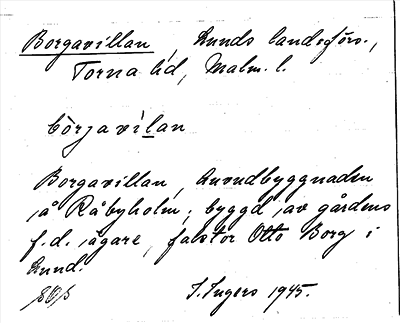 Borgavillan, Lunds landsförs.,
Torna hd, Malm. l.
bòrjavìlan
Borgavillan, huvudbyggnaden
å Råbyholm, byggd av gårdens
f.d. ägare, faktor Otto Borg i
Lund.
I. Ingers 1945.